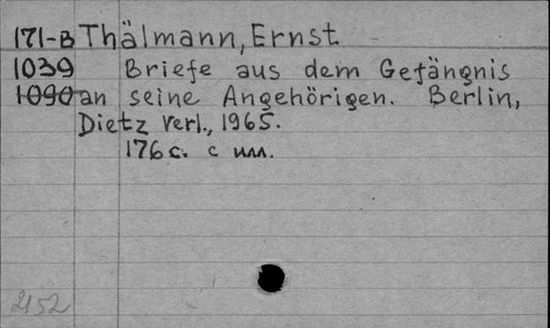 171-B Thälmann, Ernst
1039 Briefe aus dem Gefängnis
1090 an seine Angehörigen. Berlin,
Dietz Verl., 1965.
176 с. с илл.
2152